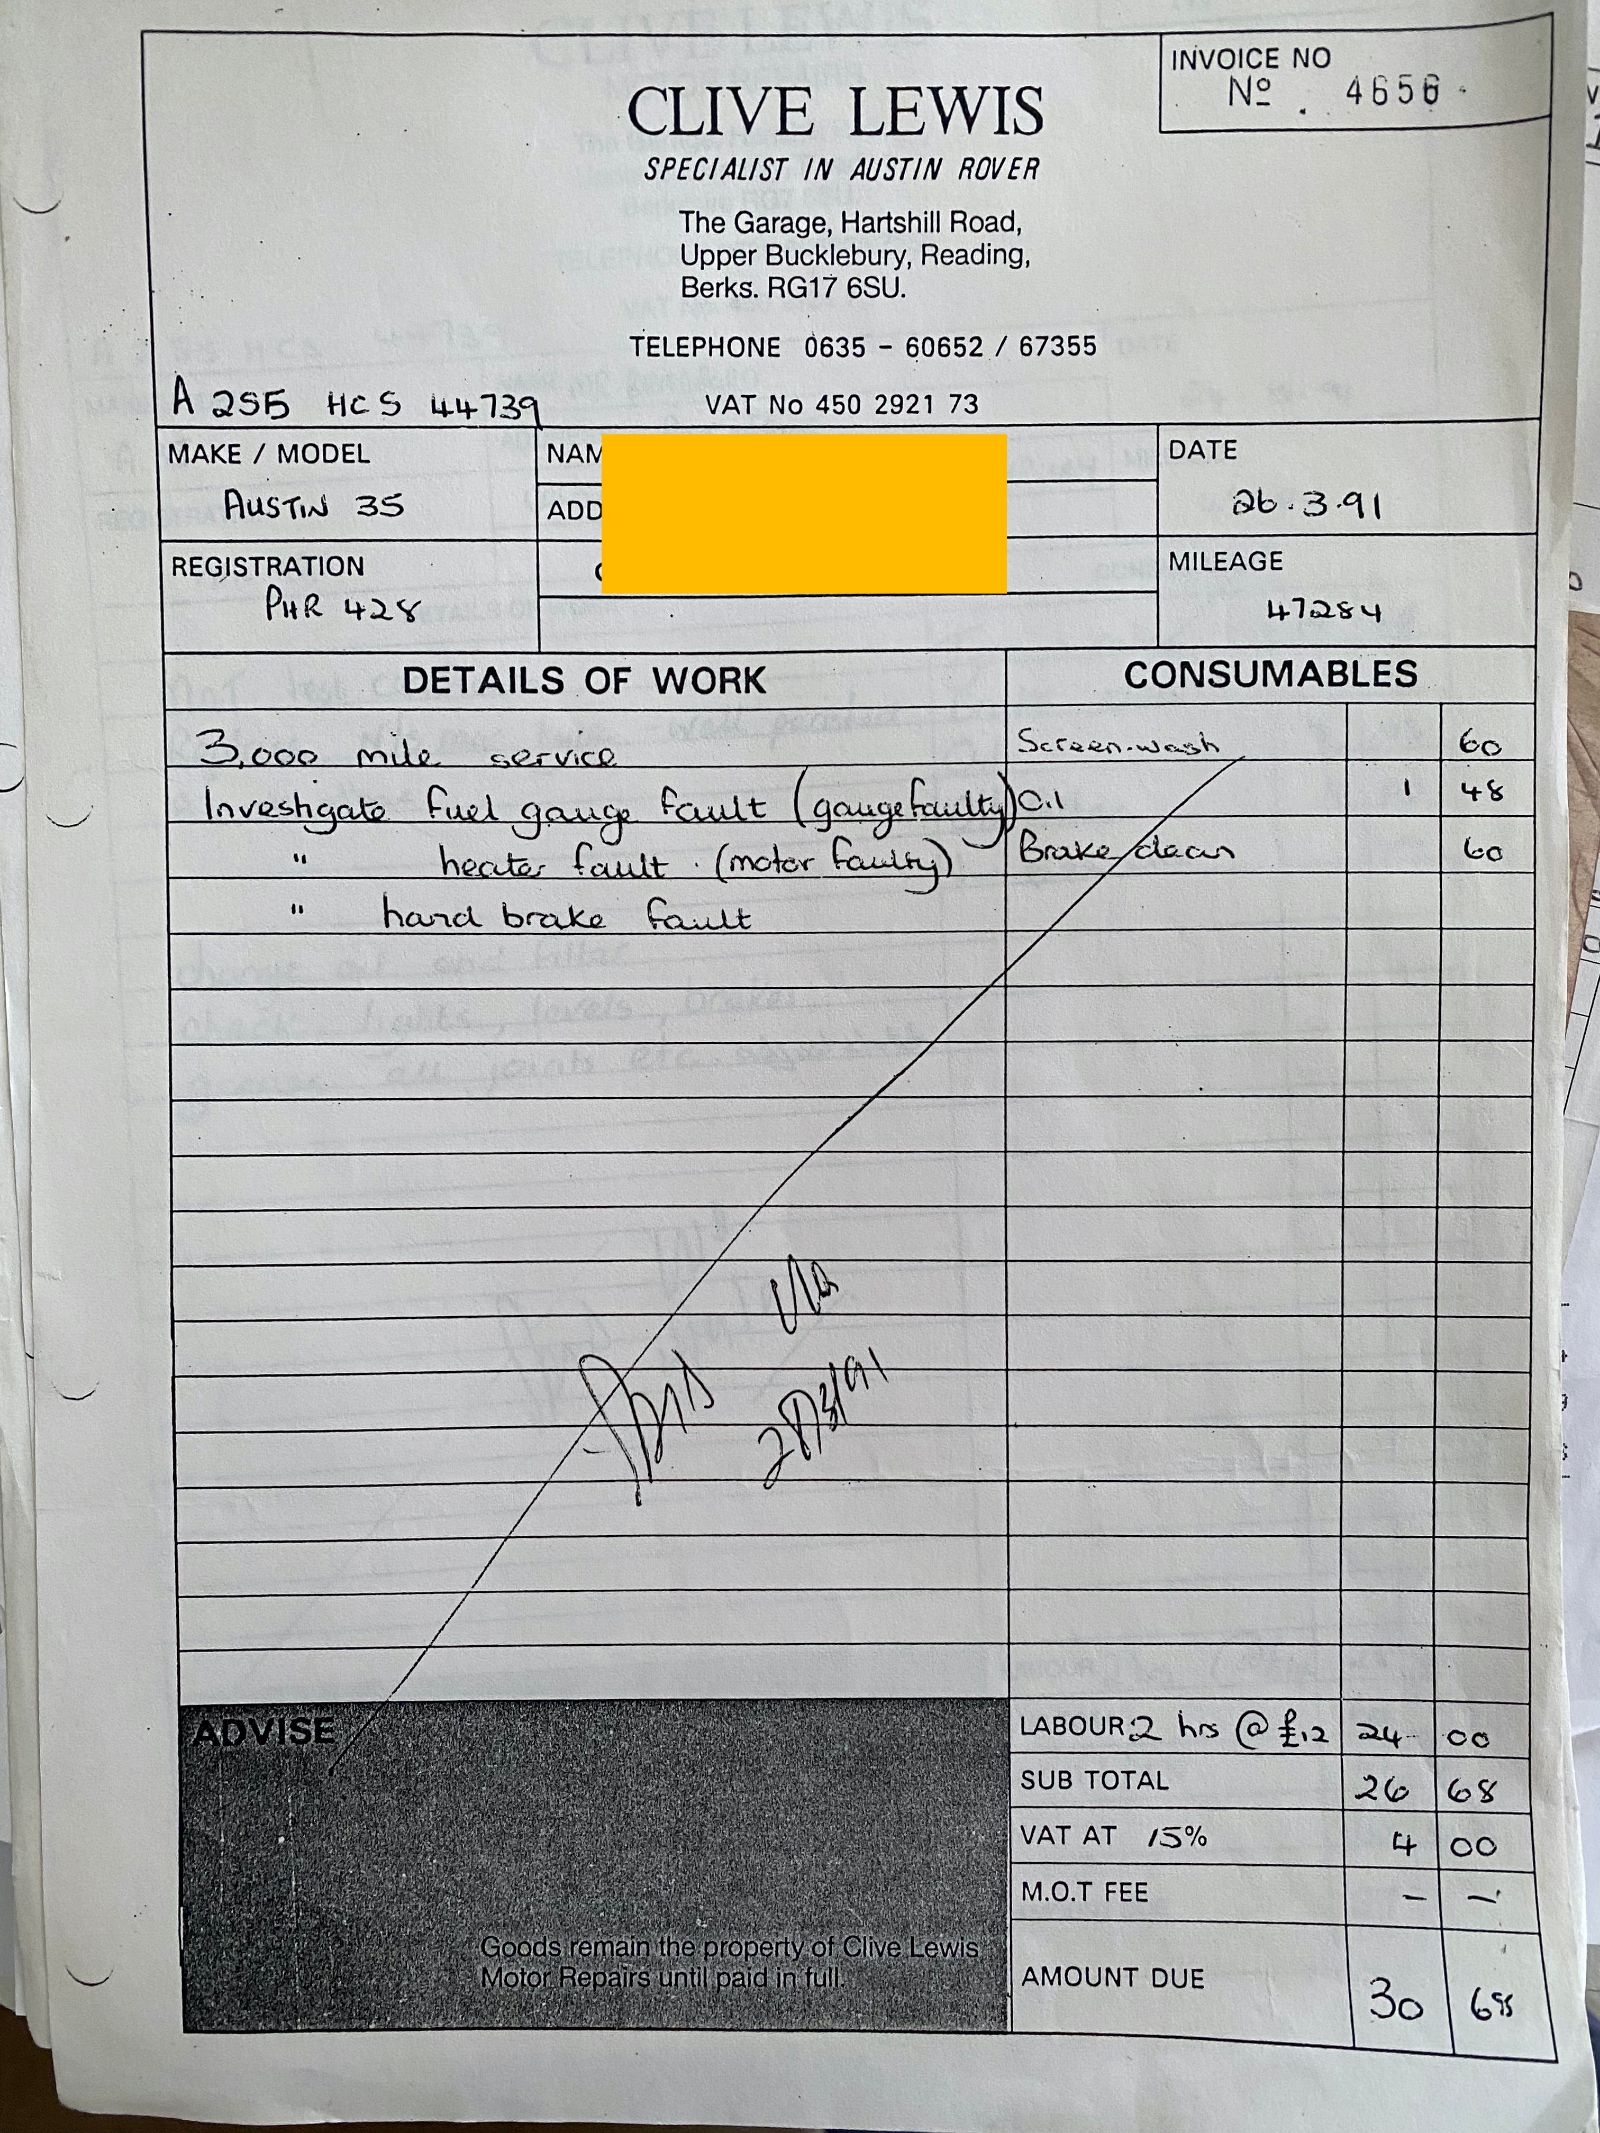 INVOICE NO
Nº . 4656
CLIVE LEWIS
SPECIALIST IN AUSTIN ROVER
The Garage, Hartshill Road,
Upper Bucklebury, Reading,
Berks. RG17 6SU.
TELEPHONE 0635 - 60652 / 67355
A 2S5 HCS 44739
VAT No 450 2921 73
MAKE / MODEL
AUSTIN 35
NAM
ADD
DATE
26.3.91
REGISTRATION
PHR 428
MILEAGE
47284
DETAILS OF WORK
CONSUMABLES
3,000 mile service
Screen-wash 60
Investigate fuel gauge fault (gauge faulty)
Oil 1 48
" heater fault . (motor faulty)
Brake clean 60
" hand brake fault
28/3/91
ADVISE
LABOUR 2 hrs @ £12 24 00
SUB TOTAL 26 68
VAT AT 15% 4 00
M.O.T FEE - -
Goods remain the property of Clive Lewis
Motor Repairs until paid in full.
AMOUNT DUE 30 68